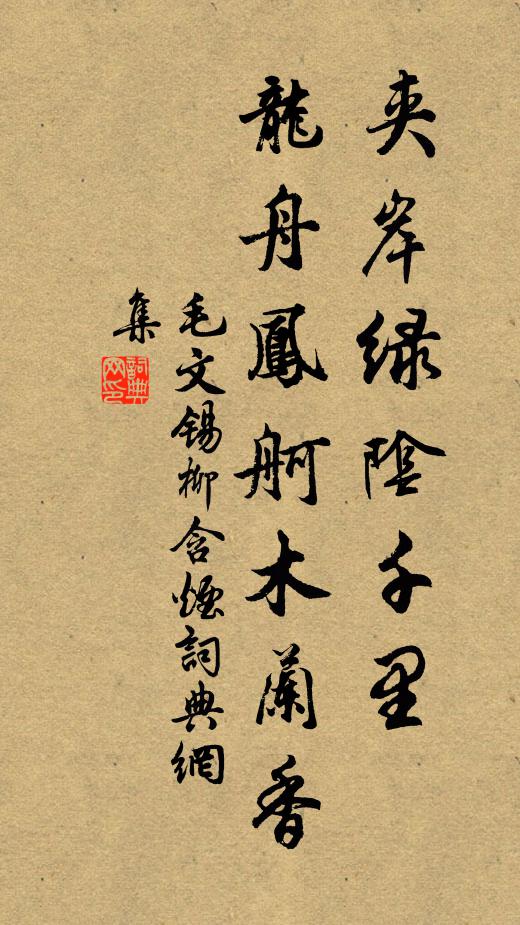 夹岸绿陰千里
龍舟鳳舸木蘭香
毛文锡柳含煙詞典網
集
詞典網印